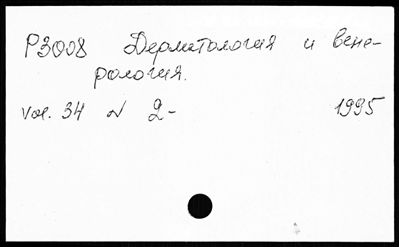 P3008 Дерматология и вене-
рология.
Vol. 34 N 2- 1995